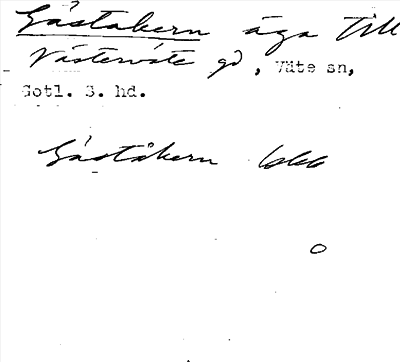 Gåstakern äga till
Västerväte gd, Väte sn,
Gotl. S. hd.
Gåståkern